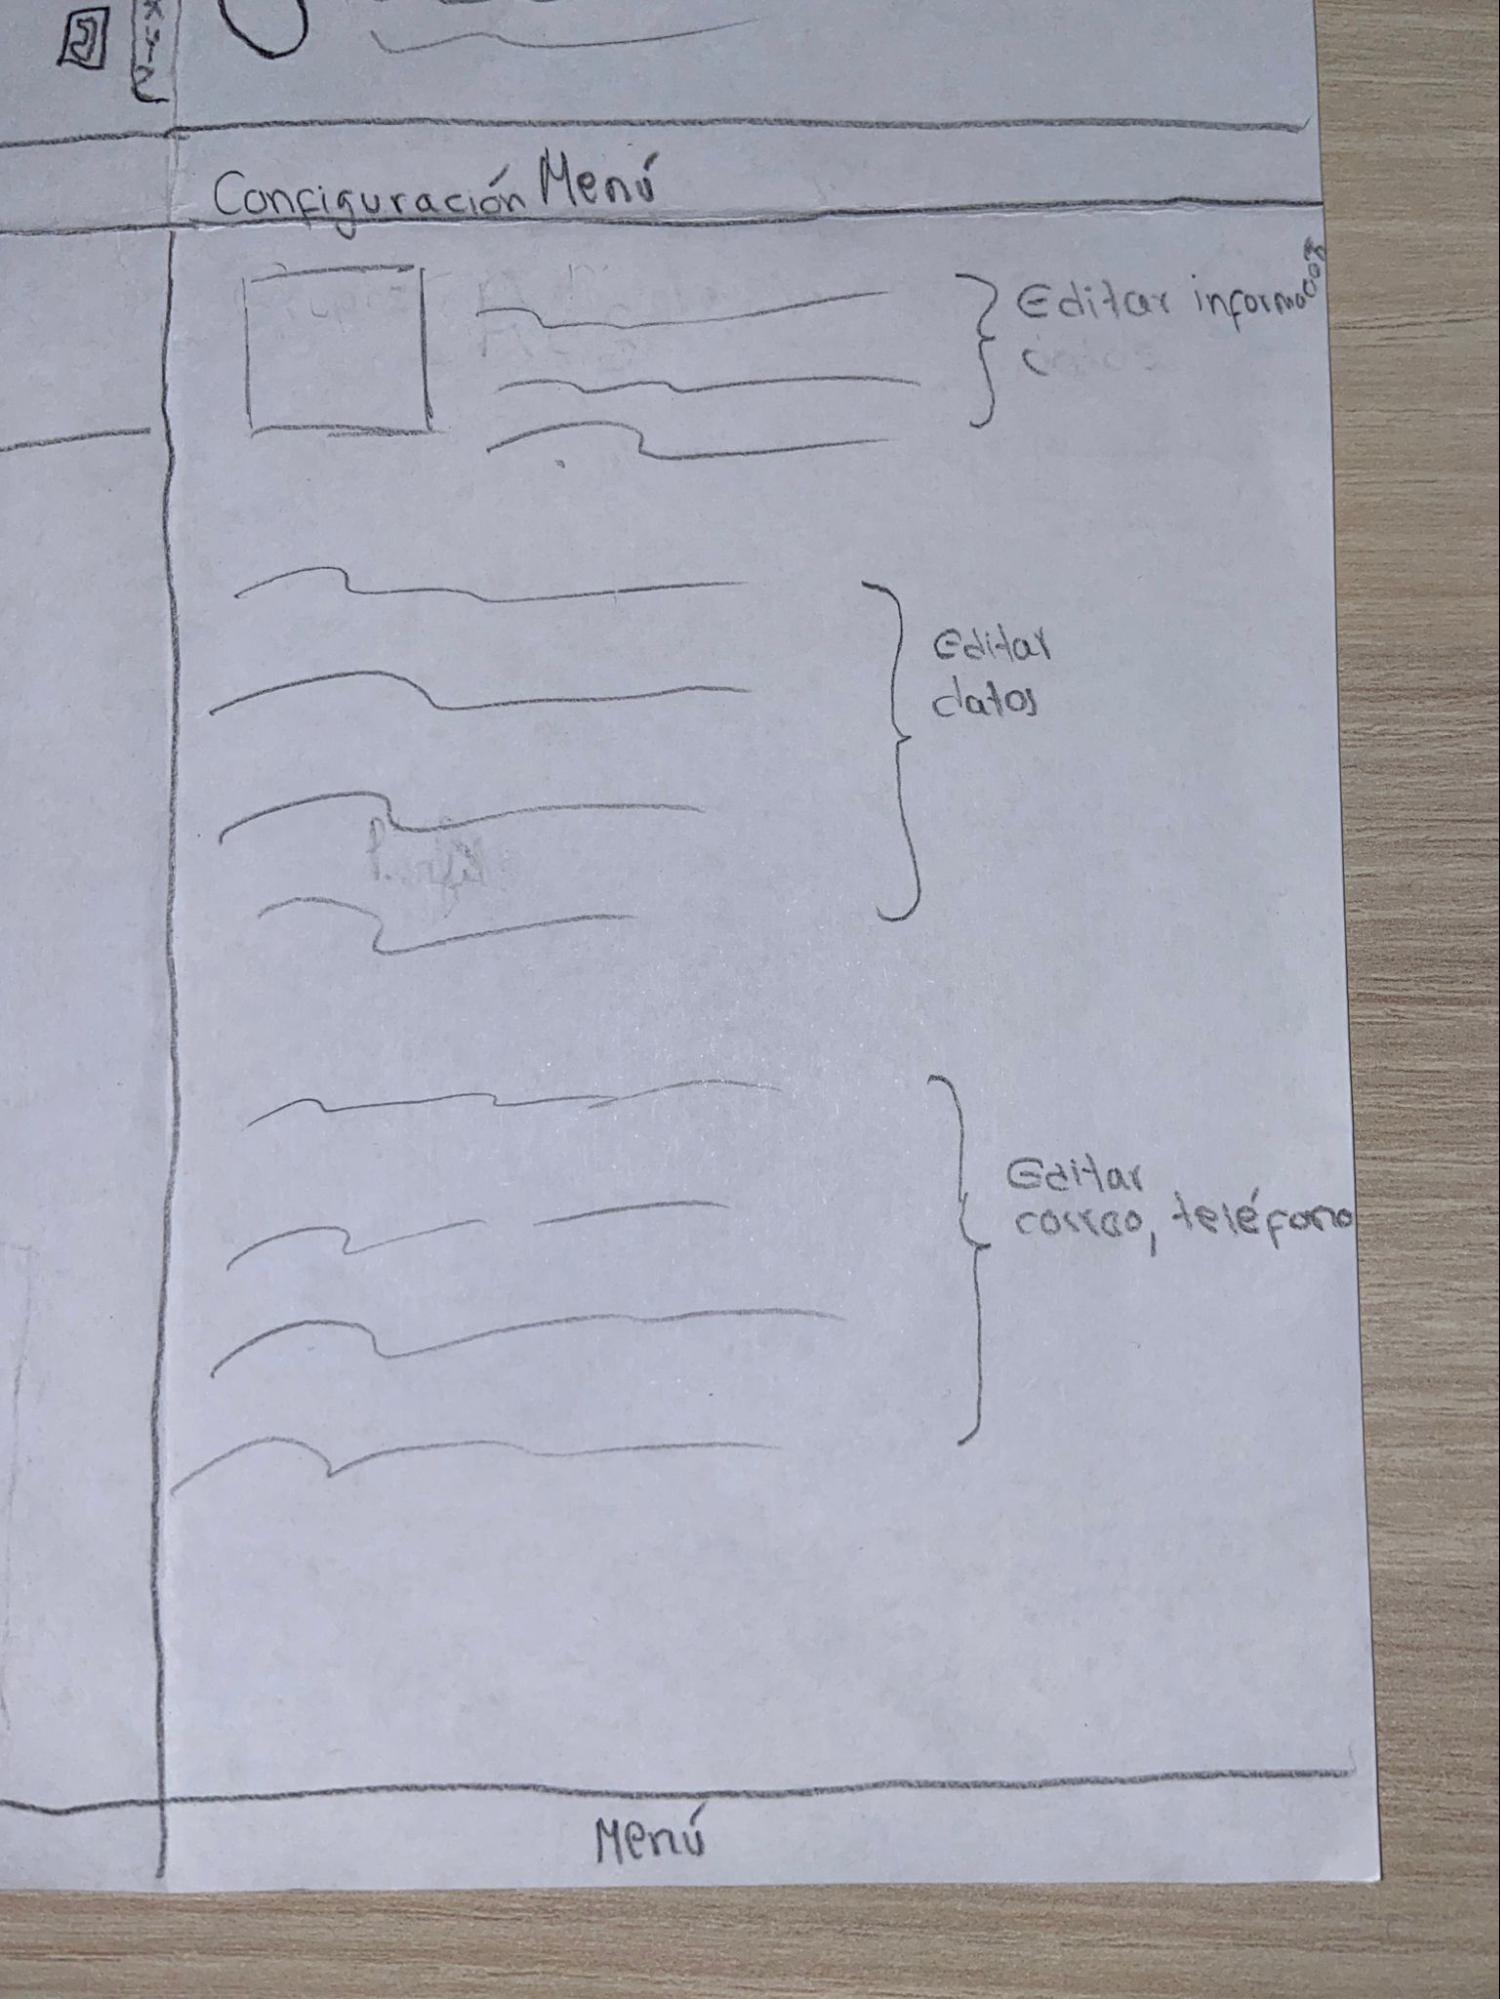 Configuración Menú
Editar información
Editar
datos
Editar
correo, teléfono
Menú